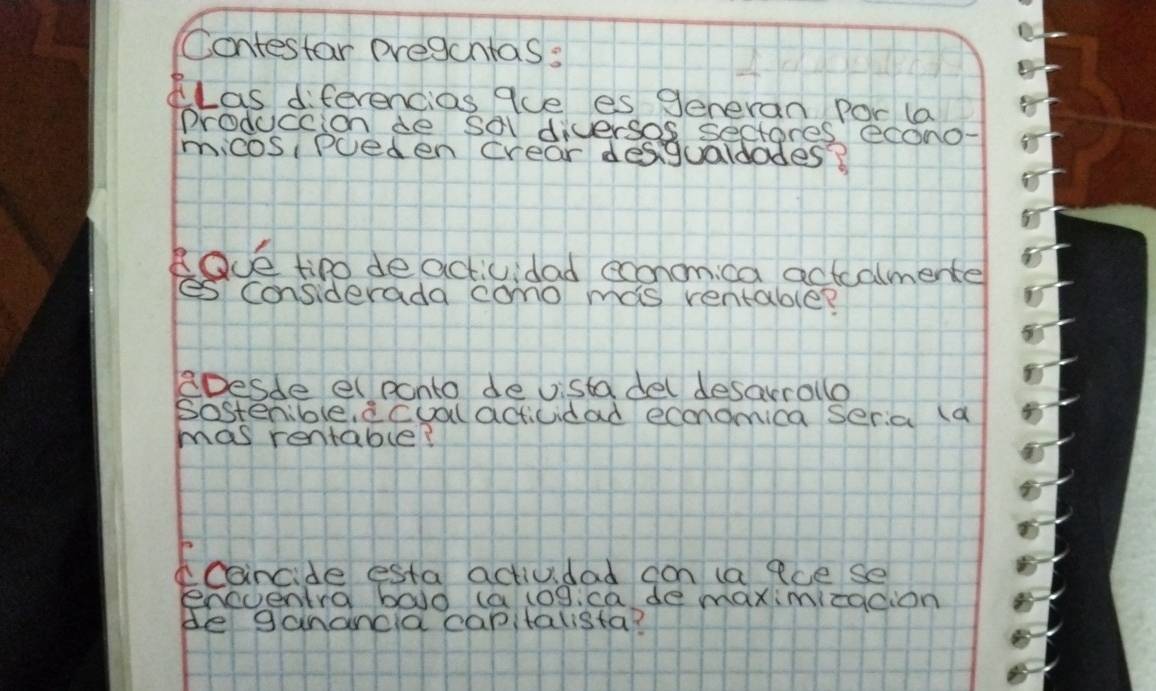 Contestar Preguntas:
¿Las diferencias que es generan Por la
Producción de sol diversos sectores econo-
micos, Pueden crear desigualdades?
¿Qué tipo de actividad economica actualmente
es considerada como más rentable?
¿Desde el punto de vista del desarrollo
Sostenible. ¿cual actividad economica seria la
mas rentable?
¿Coincide esta actividad con la que se
encuentra bajo la logica de maximización
de ganancia capitalista?